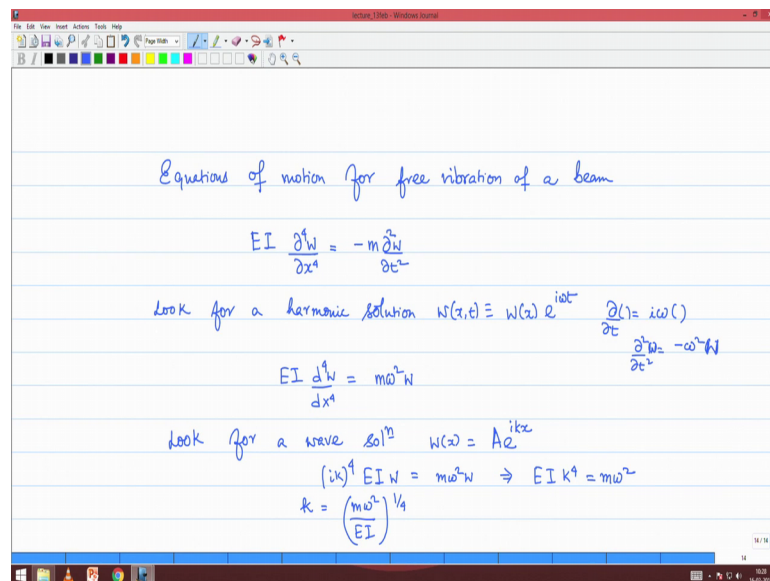 lecture_13feb - Windows Journal
File Edit View Insert Actions Tools Help
Page Width
B I
Equations of motion for free vibration of a beam
EI ∂⁴w/∂x⁴ = -m ∂²w/∂t²
Look for a harmonic solution w(x,t) ≡ w(x) e^{iωt} ∂()/∂t = iω()
∂²w/∂t² = -ω²w
EI d⁴w/dx⁴ = mω²w
Look for a wave solⁿ w(x) = Ae^{ikx}
(ik)⁴ EI w = mω²w ⇒ EI k⁴ = mω²
k = (mω²/EI)^{1/4}
14 / 14
14
10:28